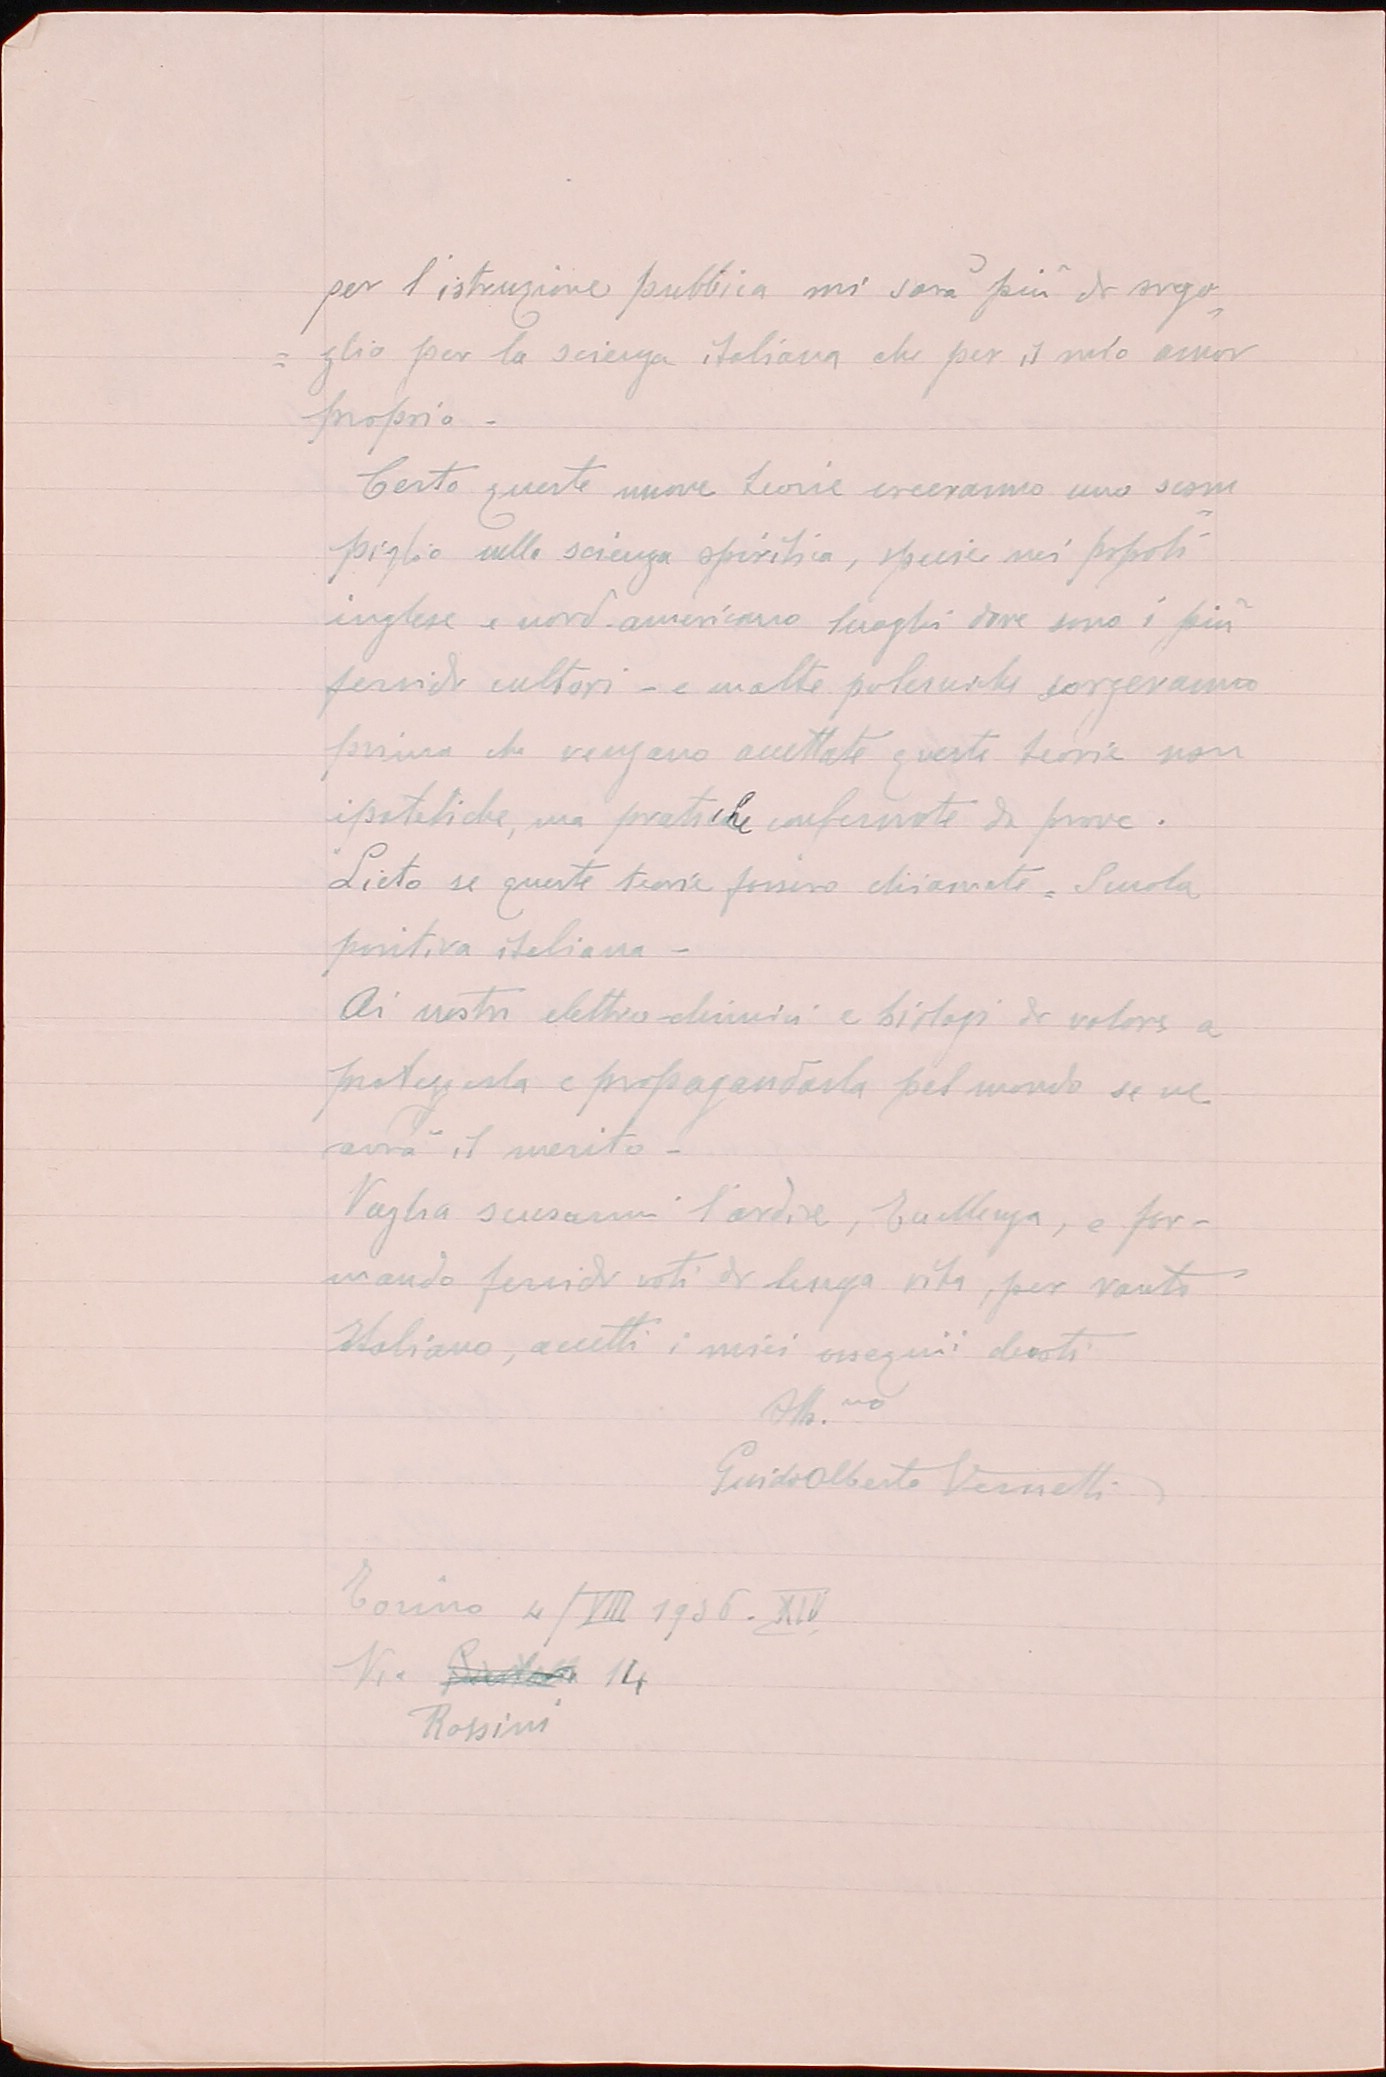 per l'istruzione pubblica mi sarà più di orgo=
= glio per la scienza italiana che per il mio amor
proprio -
Certo queste nuove teorie creeranno uno scom
piglio nella scienza spiritica, specie nei popoli
inglese e nord-americano luoghi dove sono i più
fervidi cultori - e molte polemiche sorgeranno
prima che vengano accettate queste teorie non
ipotetiche, ma pratiche confermate da prove.
Lieto se queste teorie fossero chiamate = Scuola
positiva italiana -
Ai nostri elettro-chimici e biologi di valore a
proteggerla e propagandarla pel mondo se ne
avrà il merito -
Voglia scusarmi l'ardire, Eccellenza, e for-
mando fervidi voti di lunga vita, per vanto
Italiano, accetti i miei ossequii devoti
Obb.mo
Guido Alberto Vernetti
Torino 4/VIII 1936. XIV
Via 14
Rossini